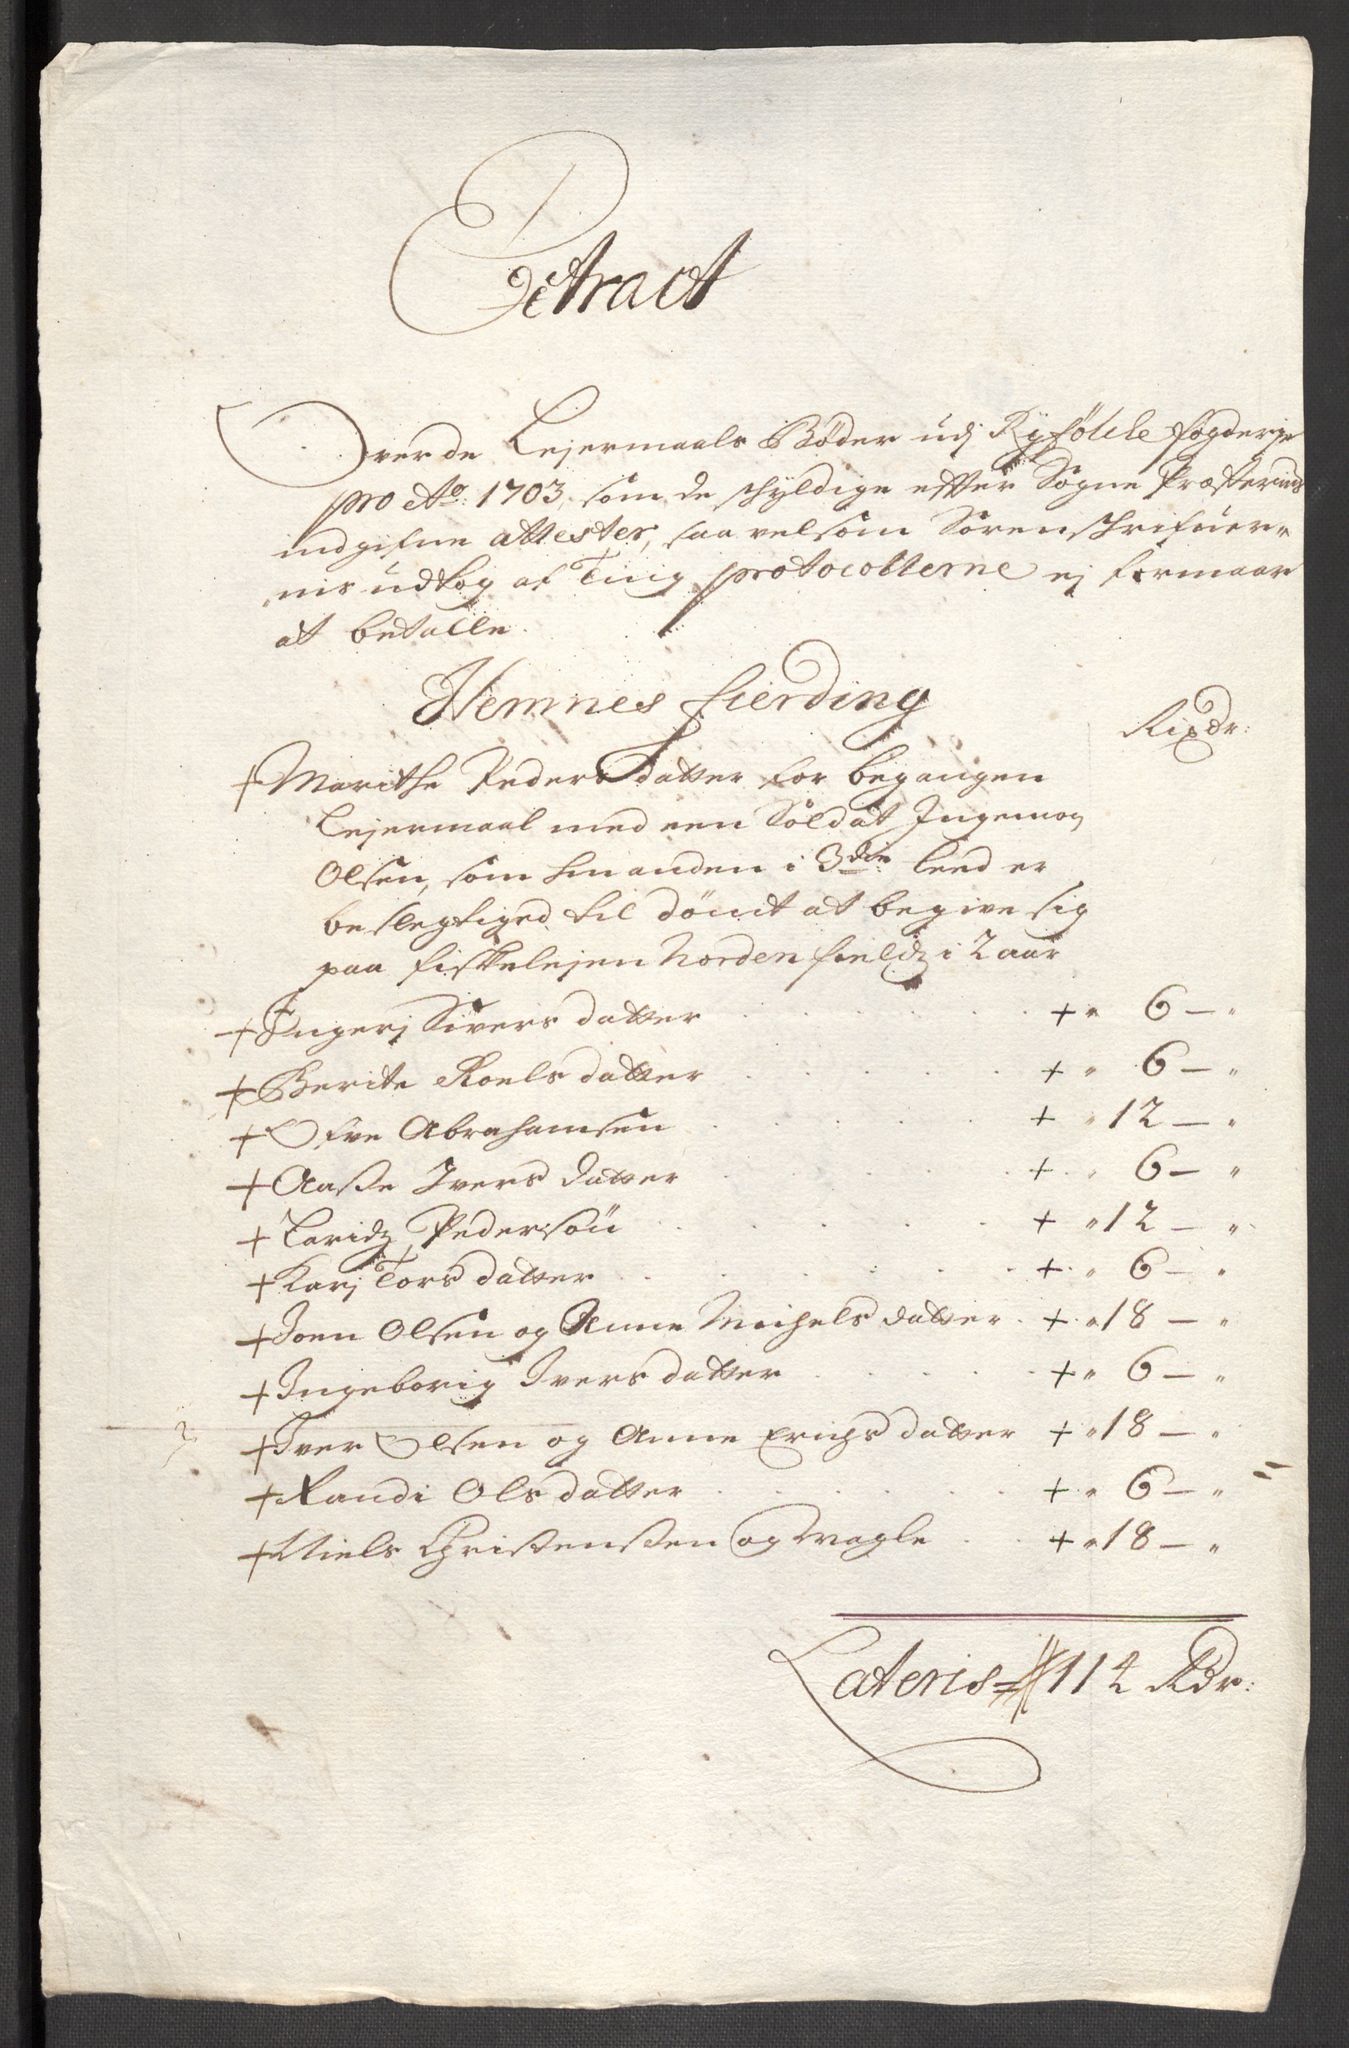 Extract
Over de Lejermaals Bøder udj Ryfölche fogderje
pro Ao: 1703, som de schyldige efter Sogne Præsternis
indgifne attester, saa velsom Sorenschrifuer=
nis udtog af Ting protocollerne ej formaar
at betalle.
Hemnes fierding
Rixdr:
+ Marithe Peders datter for begangen
Lejermaal med een Soldat Ingemoy
Olsen, som hinanden i 3die leed er
beslegtiged til dömt at begive sig
paa fiskelejen Nordenfieldz i 2 aar
+ Ingerj Sivers datter . . . + " 6 — "
+ Berite Roels datter . . . + " 6 — "
+ Ofve Abrahamsen . . . + " 12 — "
+ Aaße Ivers datter . . . + " 6 — "
+ Laridz Pedersön . . . + " 12 — "
+ Karj Tors datter . . . + " 6 — "
+ Joen Olsen og Anne Michels datter . + " 18 — "
+ Ingeborig Ivers datter . . . + " 6 — "
+ Iver Olsen og Anne Erichs datter + " 18 — "
+ Randi Ols datter . . . + " 6 — "
+ Niels Christensen og Magle . . + " 18 — "
Lateris = 114 Rdr: